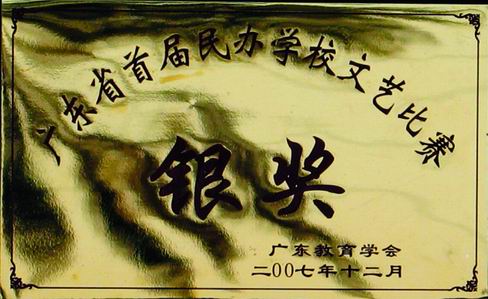 广东省首届民办学校文艺比赛
银奖
广东教育学会
二00七年十二月